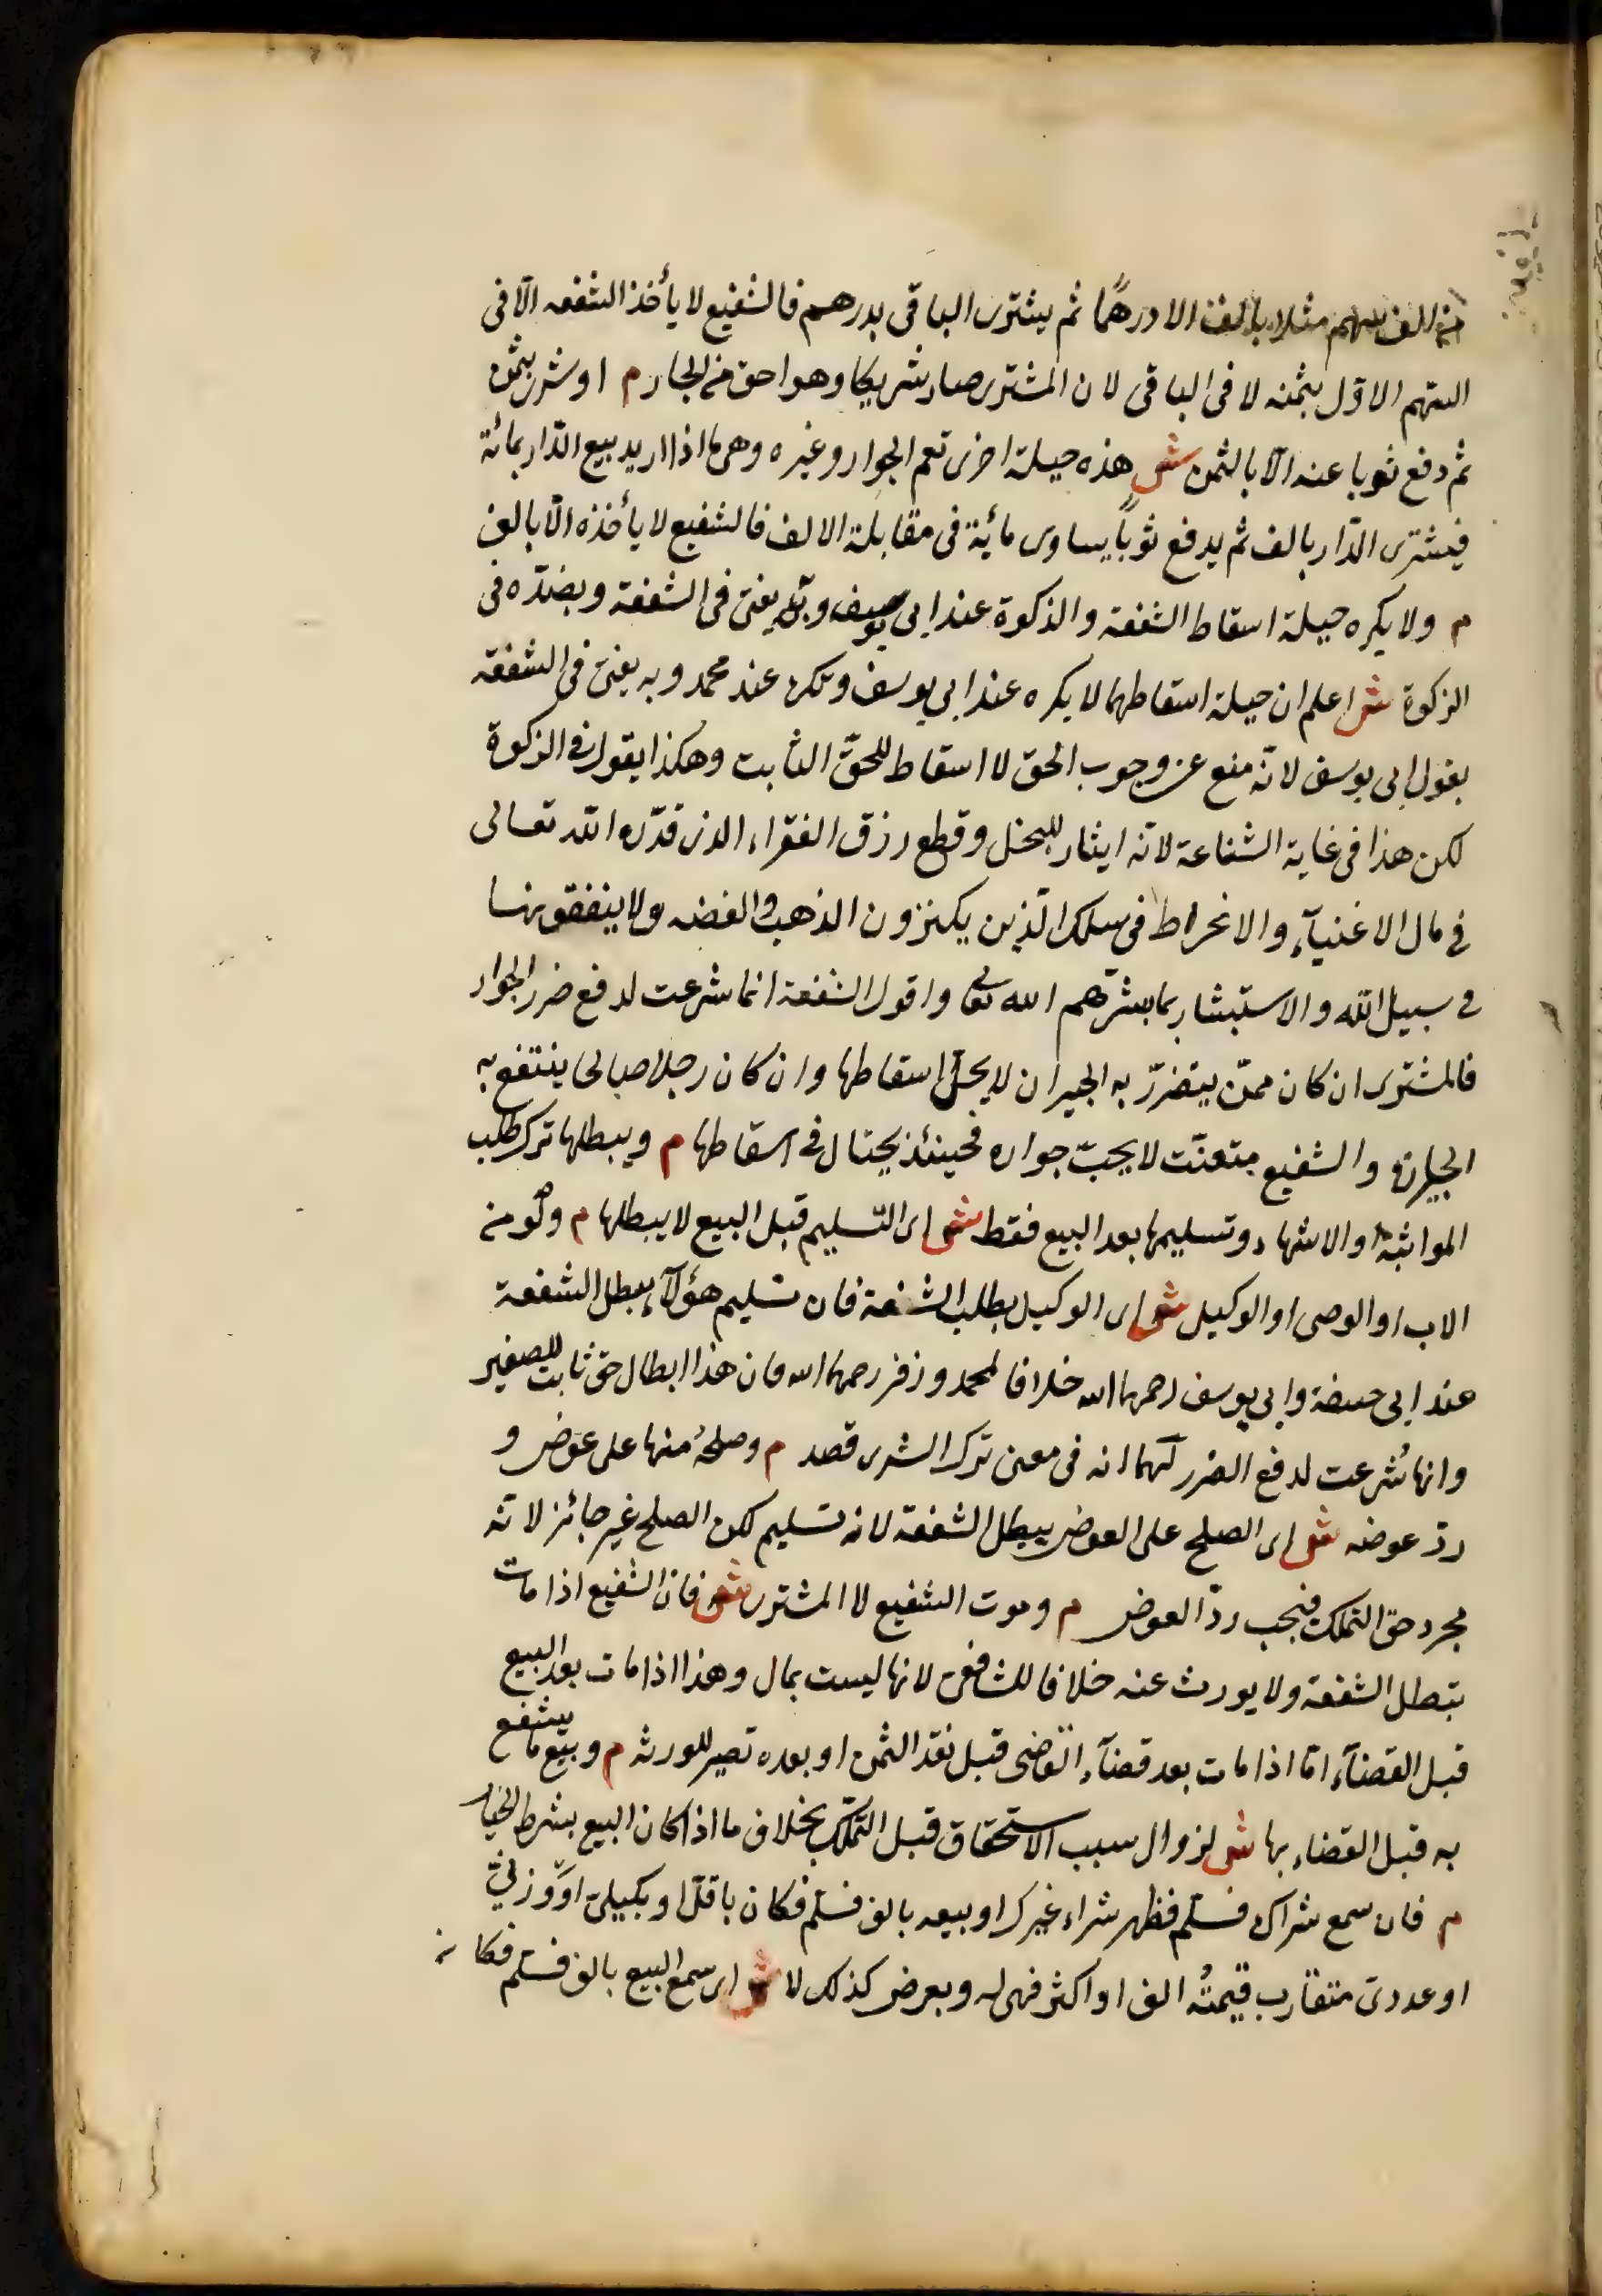 من الف سهم مثلا بالف الا درهمًا ثم يشترى الباقى بدرهم فالشفيع لا يأخذ الشفعه الّا فى
السّهم الاوّل بثمنه لا فى الباقى لان المشترى صار شريكا وهو احق من الجار م او شرى بثمن
ثم دفع ثوبا عنه الّا بالثمن ش هذه حيلة اخرى تعم الجوار وغيره وهى ما اذا اريد بيع الدّار بمائة
فيشترى الدّار بالف ثم يدفع ثوباً يساوى مائة فى مقابلة الالف فالشفيع لا يأخذه الّا بالف
م ولا يكره حيلة اسقاط الشفعة والزكوة عند ابى يوسف وبه يفتى فى الشفعة وبضدّه فى
الزكوة ش اعلم ان حيلة اسقاطهما لا يكره عند ابى يوسف وتكره عند محمد وبه يفتى فى الشفعه
بقول ابى يوسف لانّه منع عن وجوب الحق لا اسقاط للحقّ الثابت وهكذا يقول فى الزكوة
لكن هذا فى غاية الشناعة لانّه ايثار للبخل وقطع رزق الفقراء الذى قدّره اللّه تعالى
فى مال الاغنيآء والانخراط فى سلك الّذين يكنزون الذهب والفضه ولا ينفقونها
فى سبيل اللّه والاستبشار بما بشرّهم الله تعالى واقول الشفعة انما شرعت لدفع ضرر الجوار
فالمشترى ان كان ممّن يتضرّر به الجيران لا يحلّ اسقاطها وان كان رجلا صالحا ينتفع به
الجيران والشفيع متعنّت لا يحبّ جواره فحينئذ يحتال فى اسقاطها م ويبطلها ترك طلب
المواثبة او الاشهاد وتسليمها بعد البيع فقط ش اى التّسليم قبل البيع لا يبطلها م ولو من
الاب او الوصى او الوكيل ش اى الوكيل بطلب الشفعة فان تسليم هؤلآء يبطل الشفعة
عند ابى حنيفة وابى يوسف رحمهما الله خلافا لمحمد وزفر رحمهما الله فان هذا ابطال حق ثابت للصغير
وانها شُرعت لدفع الضرر لهما انه فى معنى ترك الشرى قصد م وصلحُه منها على عوض و
ردّ عوضه ش اى الصلح على العوض يبطل الشفعة لانه تسليم لكن الصلح غير جائز لانّه
مجرد حق التملك فيجب ردّ العوض م وموت الشفيع لا المشترى ش فان الشفيع اذا مات
تبطل الشفعة ولا يورث عنه خلافا للشافعى لانها ليست بمال وهذا اذا مات بعد البيع
قبل القضآء امّا اذا مات بعد قضآء القاضى قبل نقد الثمن او بعده تصير للورثه م وبيع ما يشفع
به قبل القضاء بها ش لزوال سبب الاستحقاق قبل التملّك بخلاف ما اذا كان البيع بشرط الخيار
م فان سمع شراك فسلّم فظهر شراء غيرك او بيعه بالف فسلّم فكان باقلّ او بكيلىّ او وزنىّ
او عددىّ متقارب قيمتُه الف او اكثر فهى له وبعرض كذلك لا ش اى سمع البيع بالف فسلّم فكان